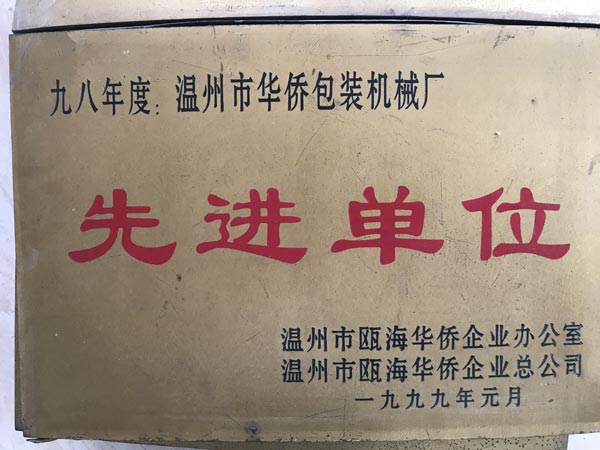 九八年度：温州市华侨包装机械厂
先进单位
温州市瓯海华侨企业办公室
温州市瓯海华侨企业总公司
一九九九年元月